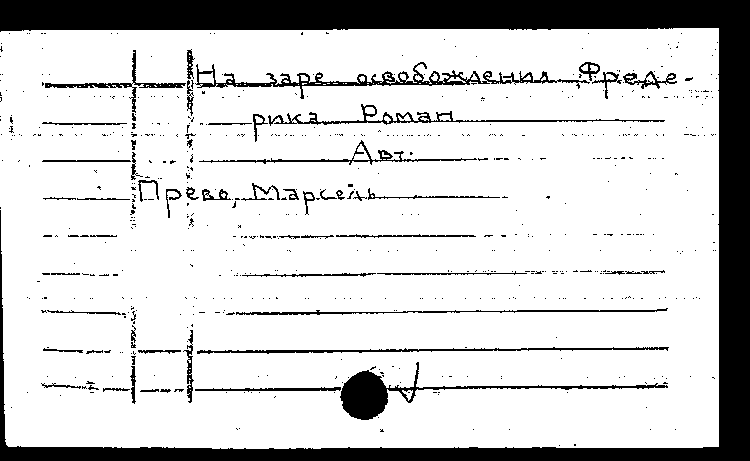 На заре освобождения Фреде-
рика Роман
Авт.
Прево, Марсель